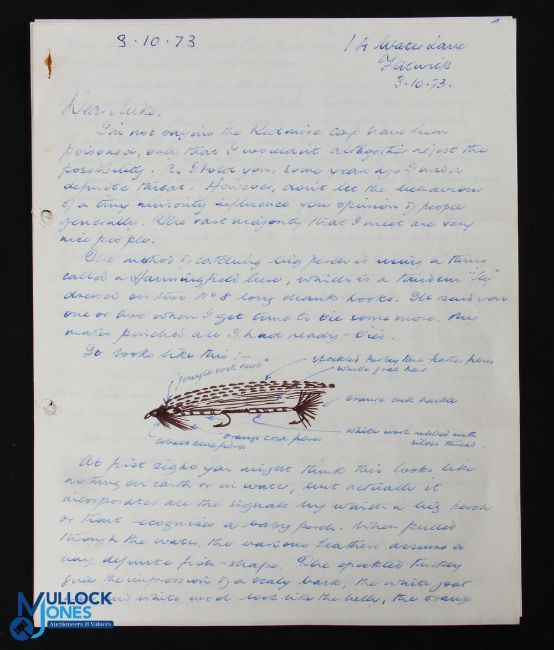 3·10·73
1A Waterdave
Flitwick
3·10·73.
Dear Mike,
I'm not saying the Redmire carp have been
poisoned, only that I wouldn't altogether reject the
possibility. As I told you, some years ago I had a
definite threat. However, don't let the behaviour
of a tiny minority influence your opinion of people
generally. The vast majority that I meet are very
nice people.
One method of catching big perch is using a thing
called a Hanningfield lure, which is a tandem "fly"
dressed on two No 8 long shank hooks. I'll send you
one or two when I get time to tie some more. My
mates pinched all I had ready-tied.
It looks like this:-
speckled turkey tail feather fibres
white goat hair
"jungle cock eyes"
orange cock hackle
white wool ribbed with
silver thread.
orange cock fibres
cobalt blue fibres
At first sight you might think this looks like
nothing on earth or in water, but actually it
incorporates all the signals by which a big perch
or trout recognises a baby perch. When pulled
through the water, the various feathers assume a
very definite fish-shape. The speckled turkey
gives the impression of a scaly back, the white goat
and white wool look like the belly, the orange
MULLOCK
JONES
Auctioneers & Valuers